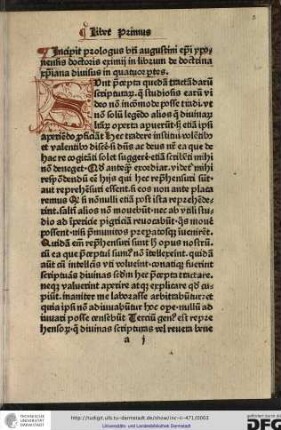 Liber Primus
Incipit prologus bti augustini epi ypo
nensis doctoris eximij in librum de doctrina
xpiana diuisus in quatuor ptes.
Unt pcepta quedã tractãdarũ
scripturaꝝ. q̃ studiosis earũ vi
deo nõ incõmode posse tradi. vt
nõ solũ legẽdo alios q̃ diuinaꝝ
lr̃aꝝ opta apuerũt. s; etiã ipsi
apriẽdo pficiãt. Hec tradere institui volẽtibꝰ
et valentibꝰ discẽ. si dñs ac deus nr̃ ea que de
hac re cogitãti solet suggerẽ etiã scribẽti mihi
nõ deneget. Qd anteq̃ exordiar. videt̃ mihi
respõdendũ eẽ hijs qui hec reprehẽsuri sũt
aut reprehẽsuri essent. si eos non ante placa
remus Q si nõnulli etiã post ista reprehẽde-
rint. saltẽ alios nõ mouebũt. nec ab vtili stu-
dio ad ipericie pigriciã reuocabũt. q̃s mouẽ
possent. nisi pmunitos preparatosq̃ inuenirẽt.
Quidã em̃ reprehẽsuri sunt h̾ opus nostrũ.
cũ ea que pceptui sum̃ nõ itellexerint. quidã
aũt cũ intellectis vti voluerint. conatiq̃ fuerint
scripturas diuinas scdm hec pcepta tractare.
neq̃ valuerint aperire atq̃ explicare qd cu-
piũt. inaniter me laborasse arbitrabũtur. et
quia ipsi nõ adiuuabũtur hoc ope. nullũ ad
iuuari posse censebũt Terciũ genꝰ est repre
hensoꝝ. q̃ diuinas scripturas vel reuera bene
a j
http://tudigit.ulb.tu-darmstadt.de/show/inc-ii-471/0003
Universitäts- und Landesbibliothek Darmstadt
DFG